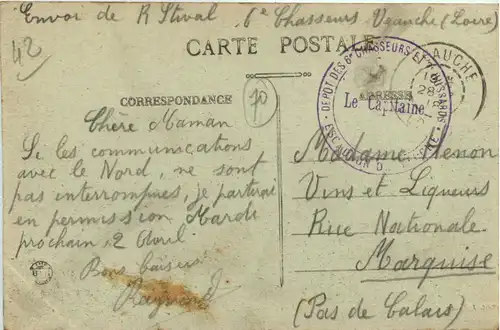 Envoi de R Stival 6e Chasseurs Veauche (Loire)
42
CARTE POSTALE
CORRESPONDANCE
70
ADRESSE
DEPOT DES 6e CHASSEURS ET HUSSARDS
Le Capitaine
ESCADRON
AUCHE
28
Chère Maman
Si les communications
avec le Nord, ne sont
pas interrompues, je partirai
en permission Mardi
prochain 2 Avril.
Bons baisers
Raymond
Madame Henon
Vins et Liqueurs
Rue Nationale
Marquise
(Pas de Calais)